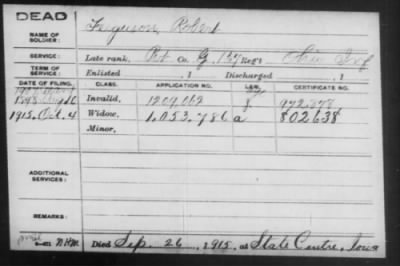 DEAD
NAME OF SOLDIER: Ferguson, Robert
SERVICE: Late rank, Pvt Co. G, 157 Reg't Ohio Inf
TERM OF SERVICE: Enlisted , 1 Discharged , 1
DATE OF FILING. CLASS. APPLICATION NO. LAW. CERTIFICATE NO.
Invalid, 1209,012 972,878
1915. Oct. 4 Widow, 1,053,786 a 802638
Minor,
ADDITIONAL SERVICES:
REMARKS:
Died Sep. 26, 1915, at State Centre, Iowa